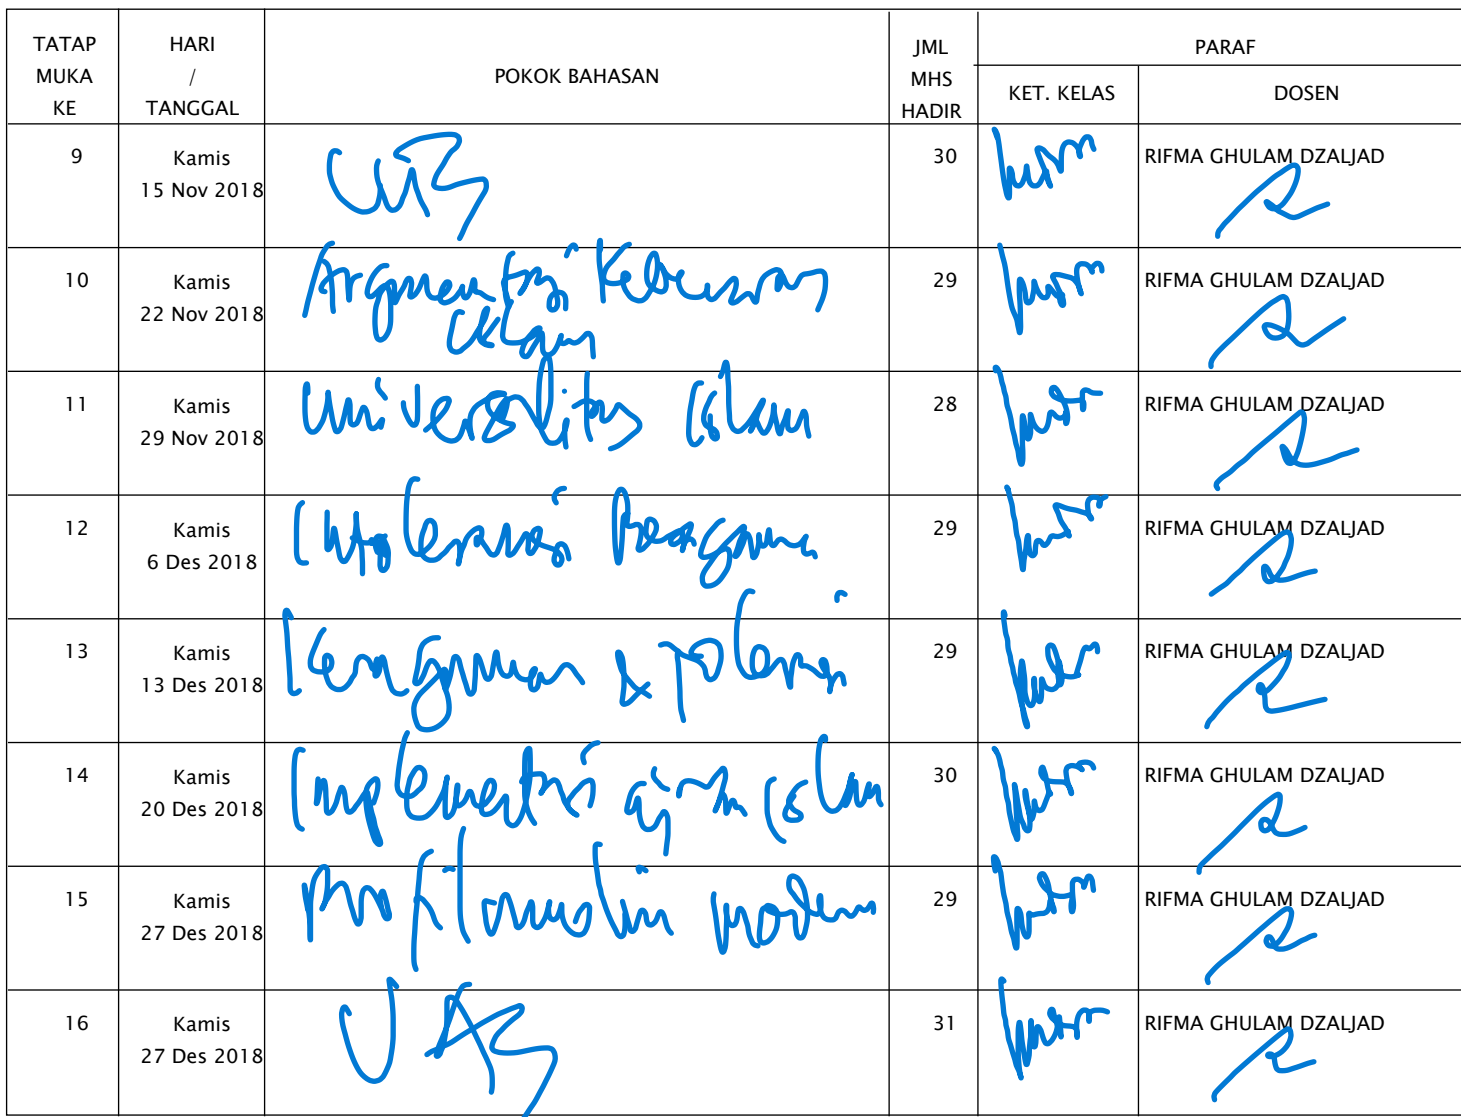 TATAP MUKA KE HARI / TANGGAL POKOK BAHASAN JML MHS HADIR PARAF
KET. KELAS DOSEN
9 Kamis 15 Nov 2018 UTS 30 RIFMA GHULAM DZALJAD
10 Kamis 22 Nov 2018 Argumentasi Kebenaran Islam 29 RIFMA GHULAM DZALJAD
11 Kamis 29 Nov 2018 Universalitas Islam 28 RIFMA GHULAM DZALJAD
12 Kamis 6 Des 2018 Intoleransi Beragama 29 RIFMA GHULAM DZALJAD
13 Kamis 13 Des 2018 & toleransi 29 RIFMA GHULAM DZALJAD
14 Kamis 20 Des 2018 Implementasi ajaran Islam 30 RIFMA GHULAM DZALJAD
15 Kamis 27 Des 2018 Profil muslim modern 29 RIFMA GHULAM DZALJAD
16 Kamis 27 Des 2018 UAS 31 RIFMA GHULAM DZALJAD